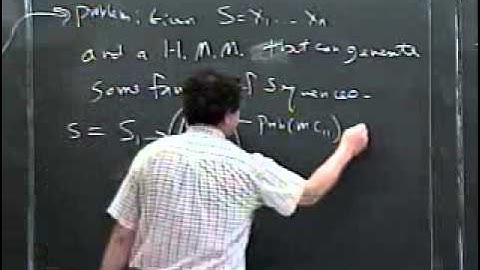 Problem: Given S = X₁ ... Xₙ
and a H.M.M. that can generate
some fam of sequences.
S = S₁ Prob(MC₁₁)